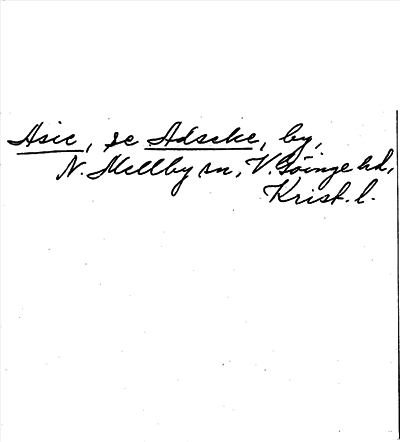 Asie, se Adseke, by,
N. Mellby sn, V. Göinge hd,
Krist. l.